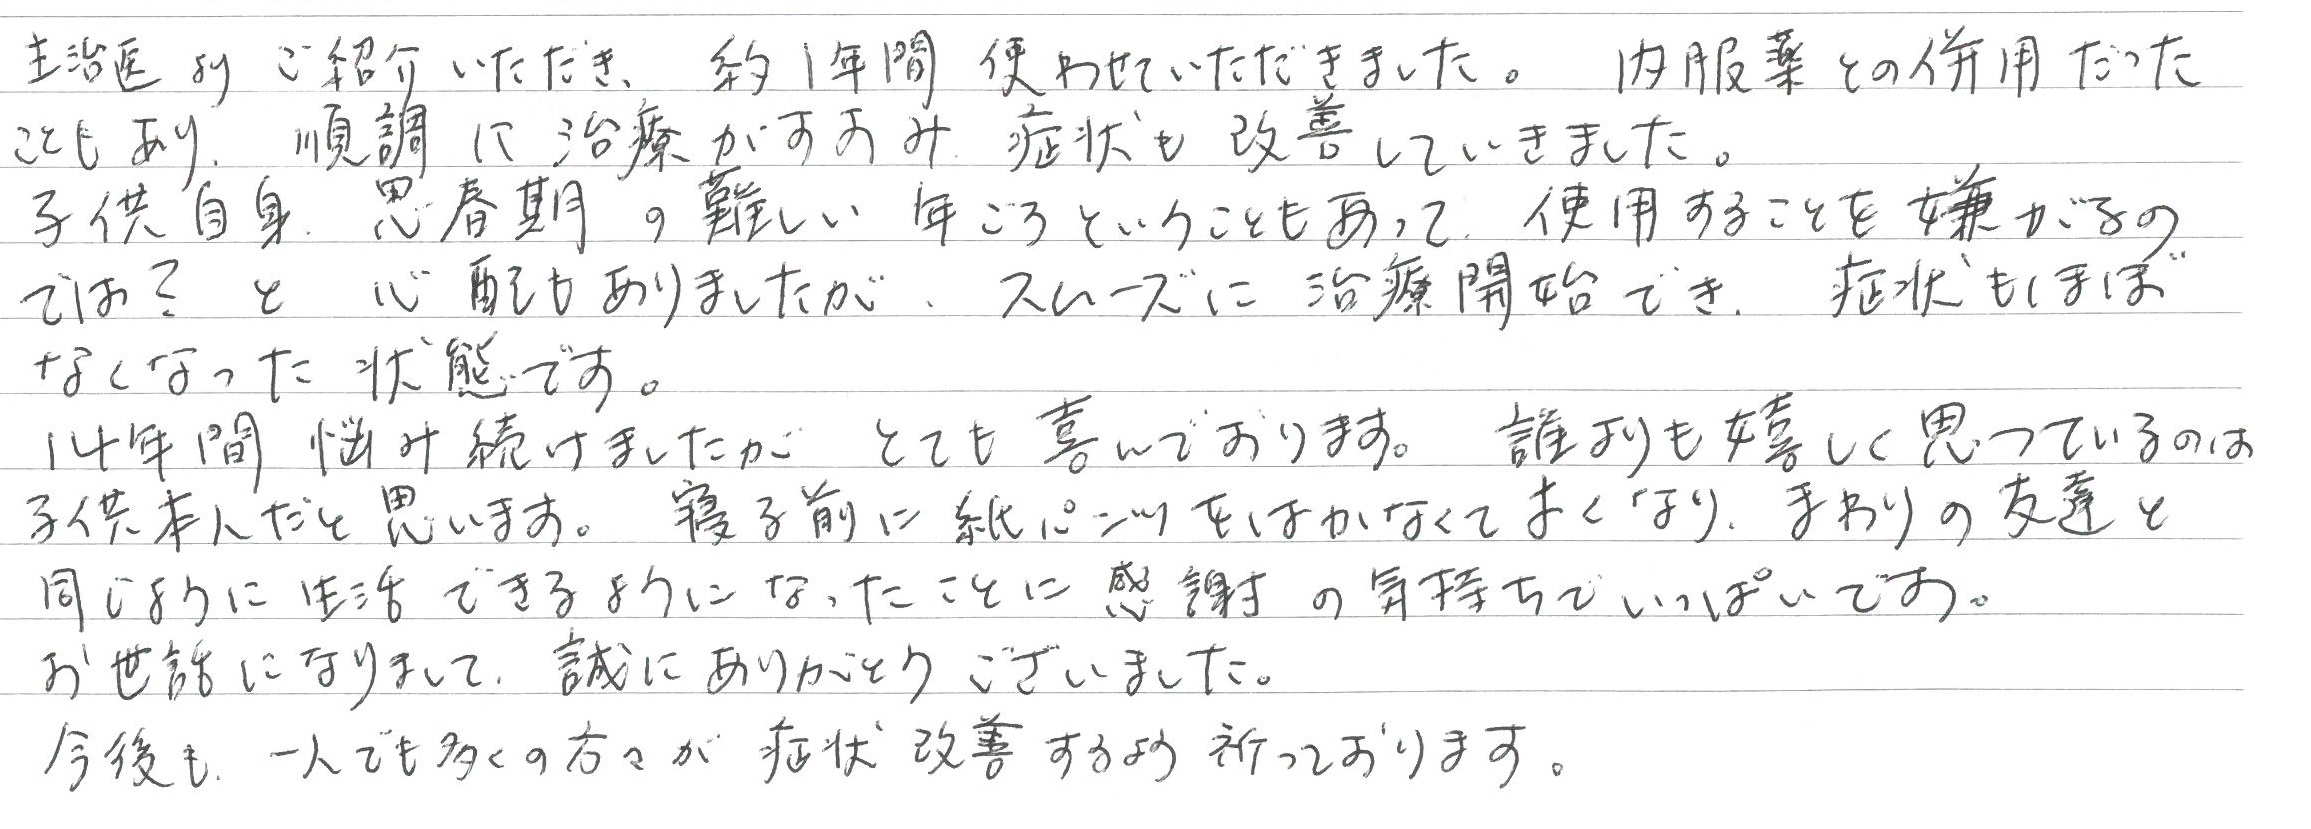 主治医より ご紹介いただき、約1年間 使わせていただきました。 内服薬との併用だった
こともあり、順調に治療がすすみ、症状も改善していきました。
子供自身、思春期の難しい年ごろということもあって、使用することを嫌がるの
では?と心配もありましたが、スムーズに治療開始でき、症状もほぼ
なくなった状態です。
14年間悩み続けましたが とても喜んでおります。 誰よりも嬉しく思っているのは
子供本人だと思います。 寝る前に紙パンツをはかなくてよくなり、まわりの友達と
同じように生活できるようになったことに感謝の気持ちでいっぱいです。
お世話になりまして、誠にありがとうございました。
今後も、一人でも多くの方々が症状改善するよう祈っております。